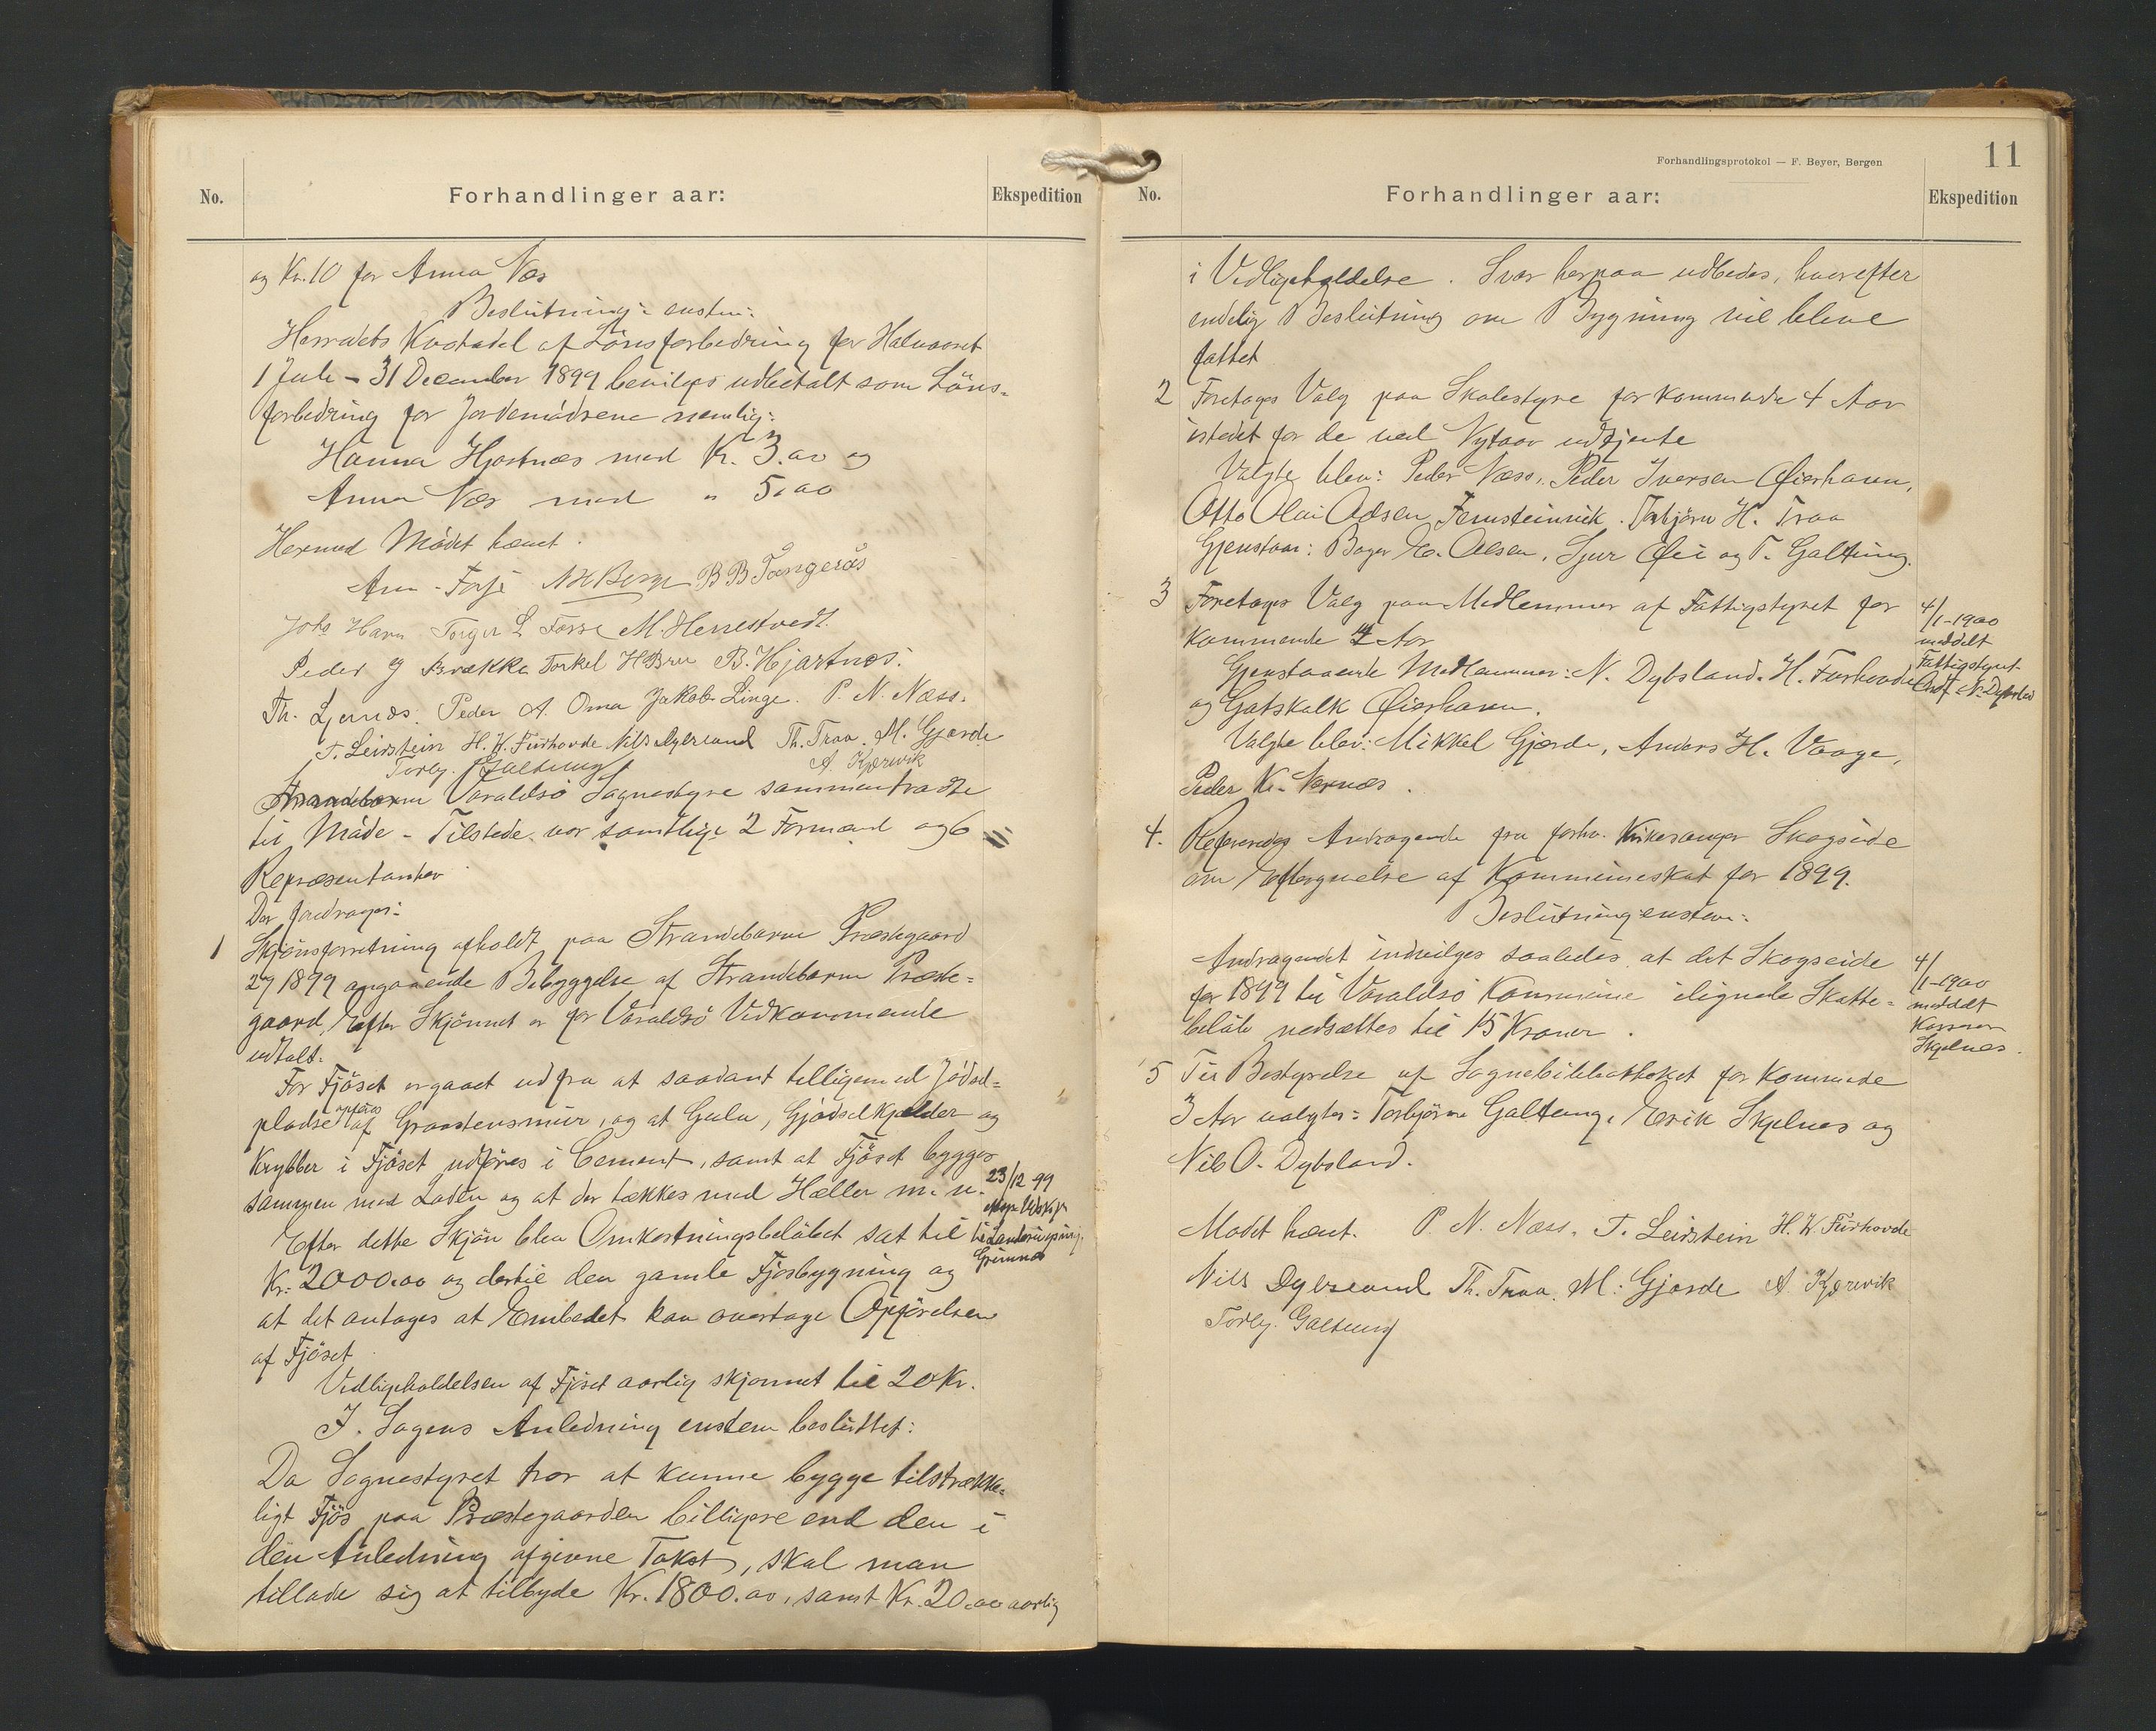 No.
Forhandlinger aar:
Ekspedition
og Kr. 10 for Anna Næs
Beslutning: enstem:
Herredets Kvotadel af Lönsforbedring for Halvaaret
1 Juli - 31 December 1899 bevilges udbetalt som Löns-
forbedring for Jordemödrene nemlig:
Hanna Hjartnæs med Kr. 3.00 og
Anna Næs med " 5.00
Hermed Mödet hævet.
N H Berge B B Tangerås
Johs Havn Torger L Fosse M. Herrestvedt.
Peder J Brække Torkel H Bru B. Hjartnæs.
Th. Ljønæs. Peder A. Oma Jakob Linge. P. N. Næss.
T. Leirstein H. K. Furhovde Nils Dybsland Th. Traa. M. Gjerde
Torbj. Galtung A. Kjærevik
Strandebarm Varaldsö Sognestyre sammentraadte
til Möde - Tilstede var samtlige 2 Formænd og 6
Repræsentanter
Der foredrages:
1 Skjönsforretning afholdt paa Strandebarm Præstegaard
27 1899 angaaende Bebyggelse af Strandebarm Præste-
gaard, Efter Skjönnet er for Varaldsö Vedkommende
udtalt:
For Fjöset ergaaet ud fra at saadant tilligemed Jödsel-
pladse opföres af Graastensmur, og at Gulv, Gjödselkjælder og
Krybber i Fjöset udföres i Cement, samt at Fjöset bygges
sammen med Laden og at der tækkes med Heller m. v.
23/12 99
Efter dette Skjön blev Omkostningsbelöbet sat til
Kr: 2000.00 og dertil den gamle Fjösbygning og
at det antages at Embedet kan overtage Opförelsen
af Fjöset
Vedligeholdelsen af Fjöset aarlig skjönnet til 20 Kr.
I Sagens Anledning enstem besluttet:
Da Sognestyret tror at kunne bygge tilstrække-
ligt Fjös paa Præstegaarden billigere end den i
den Anledning afgivne Takst, skal man
tillade sig at tilbyde Kr. 1800.00, samt Kr. 20.00 aarlig
Forhandlingsprotokol — F. Beyer, Bergen
11
No.
Forhandlinger aar:
Ekspedition
i Vedligeholdelse. Svar herpaa udbedes, hvorefter
endelig Beslutning om Bygning vil blive
fattet
2 Foretoges Valg paa Skolestyre for kommende 4 Aar
istedet for de ved Nytaar udtjente
Valgte blev: Peder Næss, Peder Iversen Øierhavn,
Otto Olai Olsen Femsteinevik. Torbjörn H. Traa
Gjenstaar: Bager E. Olsen, Sjur Øie og T. Galtung.
3 Foretoges Valg paa Medlemmer af Fattigstyret for
kommende 4 Aar
4/1-1900
meddelt
Fattigstyret
Ordf. N. Dybsland
Gjenstaaende Medlemmer: N. Dybsland. H. Furhovde
og Gotskalk Øierhavn.
Valgte blev: Mikkel Gjerde, Anders H. Vaage,
Peder K. Nernæs.
4. Refereredes Andragende fra forhv. Kirkesanger Skogseide
om Eftergivelse af Kommuneskat for 1899.
Beslutning: enstem:
Andragendet indvilges saaledes at det Skogseide
for 1899 til Varaldsö Kommune ilignede Skatte-
belöb nedsættes til 15 Kroner.
4/1-1900
meddelt
Kasserer
Skjelnes.
5 Til Bestyrelse af Sognebibliotheket for kommende
3 Aar valgtes: Torbjörn Galtung, Erik Skjelnes og
Nils O. Dybsland.
Mödet hævet. P. N. Næss. T. Leirstein H. K. Furhovde
Nils Dybsland Th. Traa. M. Gjerde A. Kjærevik
Torbj. Galtung